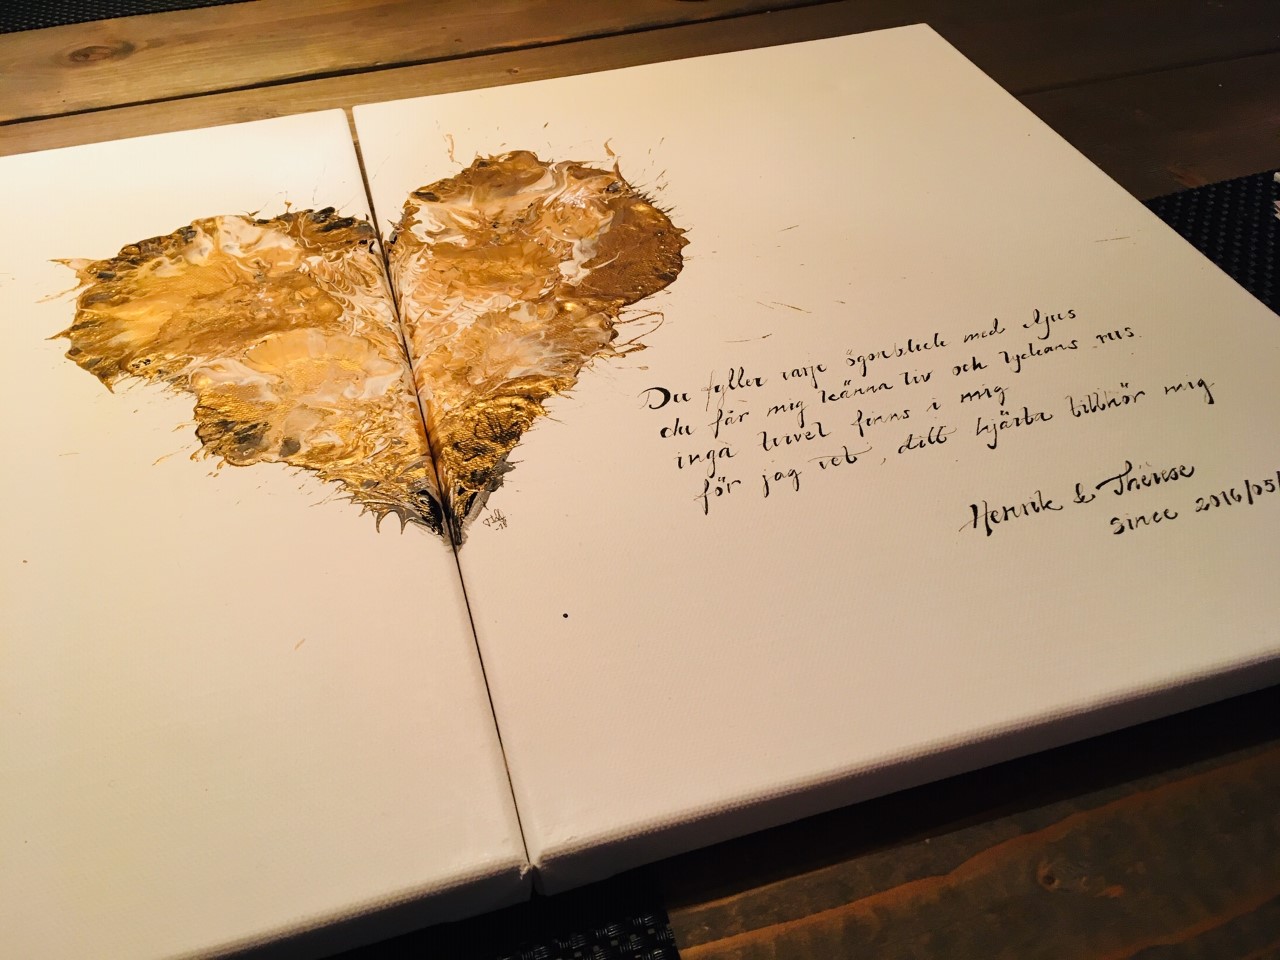 Du fyller varje ögonblick med ljus
du får mig känna liv och lyckans rus.
inga tvivel finns i mig
för jag vet, ditt hjärta tillhör mig
Henrik & Thérése
since 2016/05/